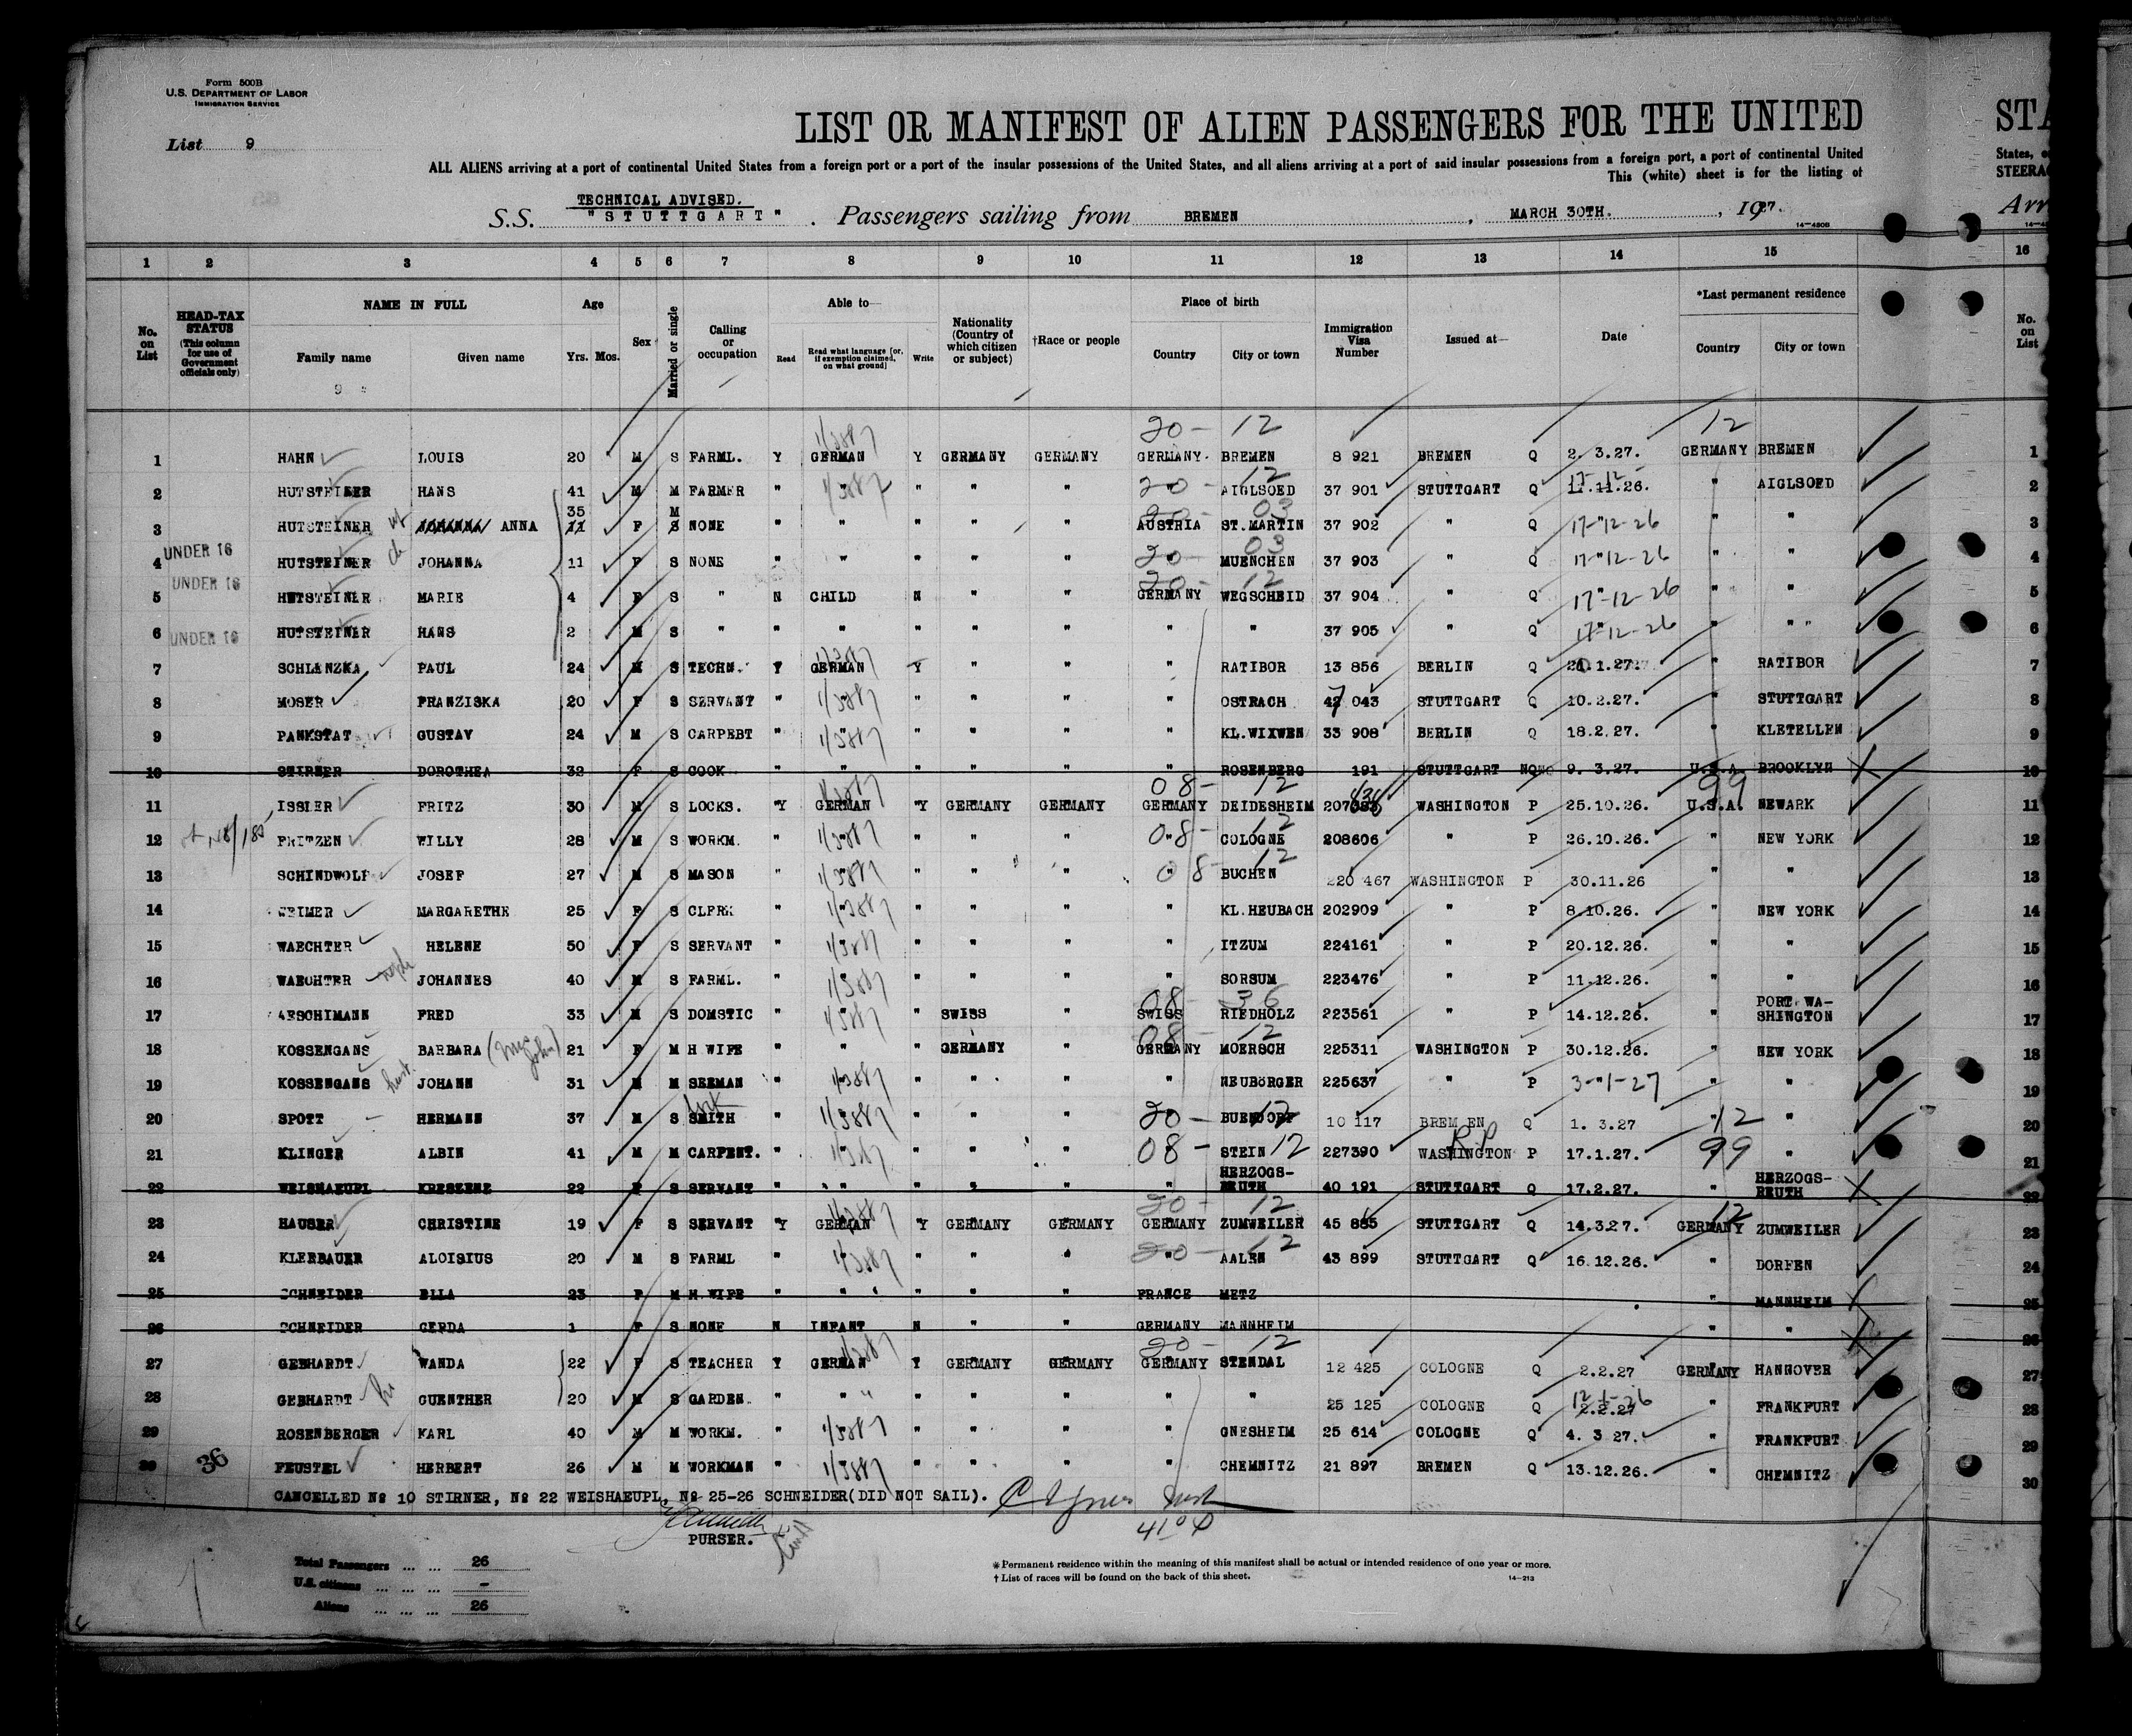 Form 500B
U.S. DEPARTMENT OF LABOR
IMMIGRATION SERVICE
List 9
LIST OR MANIFEST OF ALIEN PASSENGERS FOR THE UNITED
STA
ALL ALIENS arriving at a port of continental United States from a foreign port or a port of the insular possessions of the United States, and all aliens arriving at a port of said insular possessions from a foreign port, a port of continental United
States, o
This (white) sheet is for the listing of
STEERA
TECHNICAL ADVISED.
S.S. "STUTTGART". Passengers sailing from BREMEN, MARCH 30TH., 1927.
Arr
14-480B
1 2 3 4 5 6 7 8 9 10 11 12 13 14 15 16
No. on List
HEAD-TAX STATUS (This column for use of Government officials only)
NAME IN FULL Family name Given name
Age Yrs. Mos.
Sex
Married or single
Calling or occupation
Able to— Read Read what language [or, if exemption claimed, on what ground] Write
Nationality (Country of which citizen or subject)
†Race or people
Place of birth Country City or town
Immigration Visa Number
Issued at—
Date
*Last permanent residence Country City or town
No. on List
20- 12 12
1 HAHN LOUIS 20 M S FARML. Y GERMAN Y GERMANY GERMANY GERMANY. BREMEN 8 921 BREMEN Q 2. 3.27. GERMANY BREMEN 1
2 HUTSTEINER HANS 41 M M FARMER " " " " " " AIGLSOED 37 901 STUTTGART Q 17.12.26. " AIGLSOED 2
3 HUTSTEINER wf ANNA 35 F M NONE " " " " " AUSTRIA ST.MARTIN 37 902 " Q 17-12-26 " " 3
UNDER 16
4 HUTSTEINER ch JOHANNA 11 F S NONE " " " " " " MUENCHEN 37 903 " Q 17-12-26 " " 4
UNDER 16
5 HUTSTEINER MARIE 4 F S " N CHILD N " " GERMANY WEGSCHEID 37 904 " Q 17-12-26 " " 5
6 UNDER 16 HUTSTEINER HANS 2 M S " " " " " " " " 37 905 " Q 17-12-26 " " 6
7 SCHLENZKA PAUL 24 M S TECHN. Y GERMAN Y " " " RATIBOR 13 856 BERLIN Q 1.27. " RATIBOR 7
8 MOSER FRANZISKA 20 F S SERVANT " " " " " " OSTRACH 47 043 STUTTGART Q 10.2.27. " STUTTGART 8
9 PANKSTAT GUSTAV 24 M S CARPEBT " " " " " " KL.WIXWEN 33 908 BERLIN Q 18.2.27. " KLETELLEN 9
10 STIRNER DOROTHEA 32 F S COOK " " " " " " ROSENBERG 191 STUTTGART NQ 9. 3.27. U.S.A. BROOKLYN 10
08- 12 99
11 ISSLER FRITZ 30 M S LOCKS. Y GERMAN Y GERMANY GERMANY GERMANY DEIDESHEIM 207 WASHINGTON P 25.10.26. U.S.A. NEWARK 11
12 FRITZEN WILLY 28 M S WORKM. " " " " " " COLOGNE 208606 " P 26.10.26. " NEW YORK 12
13 SCHINDWOLF JOSEF 27 M S MASON " " " " " " BUCHEN 220 467 WASHINGTON P 30.11.26 " " 13
14 MARGARETHE 25 F S CLERK " " " " " " KL.HEUBACH 202909 " P 8.10.26. " NEW YORK 14
15 WAECHTER HELENE 50 F S SERVANT " " " " " " ITZUM 224161 " P 20.12.26. " " 15
16 WAECHTER JOHANNES 40 M S FARML. " " " " " " SORSUM 223476 " P 11.12.26. " " 16
17 AESCHIMANN FRED 33 M S DOMSTIC " " " SWISS " SWISS RIEDHOLZ 223561 " P 14.12.26. " PORT WA-SHINGTON 17
18 KOSSENGANS BARBARA (Mrs John) 21 F M H WIFE " " " GERMANY " GERMANY MOERSCH 225311 WASHINGTON P 30.12.26. " NEW YORK 18
19 KOSSENGANS husb. JOHANN 31 M M SEEMAN " " " " " " NEUBÖRGER 225637 " P 3-1-27 " " 19
20 SPOTT HERMANN 37 M S SMITH " " " " " 20- BUENDORF 10 117 BREMEN Q 1. 3.27 12 " 20
21 KLINGER ALBIN 41 M M CARPENT. " " " " " 08- STEIN 12 227390 WASHINGTON P 17.1.27. 99 " 21
22 WEISHAEUPL KRESZENZ 22 F S SERVANT " " " " " " HERZOGS-REUTH 40 191 STUTTGART Q 17.2.27. " HERZOGS-REUTH 22
20 - 12 12
23 HAUSER CHRISTINE 19 F S SERVANT Y GERMAN Y GERMANY GERMANY GERMANY ZUMWEILER 45 885 STUTTGART Q 14.3.27. GERMANY ZUMWEILER 23
24 KLERBAUER ALOISIUS 20 M S FARML " " " " " " AALEN 43 899 STUTTGART Q 16.12.26. " DORFEN 24
25 SCHNEIDER ELLA 23 F M H.WIFE " " " " " FRANCE METZ " MANNHEIM 25
26 SCHNEIDER GERDA 1 F S NONE N INFANT N " " GERMANY MANNHEIM " " 26
20- 12
27 GEBHARDT WANDA 22 F S TEACHER Y GERMAN Y GERMANY GERMANY GERMANY STENDAL 12 425 COLOGNE Q 2.2.27 GERMANY HANNOVER 27
28 GEBHARDT GUENTHER 20 M S GARDEN. " " " " " " " 25 125 COLOGNE Q 2.2.27 " FRANKFURT 28
29 ROSENBERGER KARL 40 M M WORKM. " " " " " " GNESHEIM 25 614 COLOGNE Q 4. 3 27. " FRANKFURT 29
30 36 FEUSTEL HERBERT 26 M M WORKMAN " " " " " " CHEMNITZ 21 897 BREMEN Q 13.12.26. " CHEMNITZ 30
CANCELLED № 10 STIRNER, № 22 WEISHAEUPL, № 25-26 SCHNEIDER(DID NOT SAIL).
PURSER.
Total Passengers 26
U.S. citizens -
Aliens 26
* Permanent residence within the meaning of this manifest shall be actual or intended residence of one year or more.
† List of races will be found on the back of this sheet.
14-213